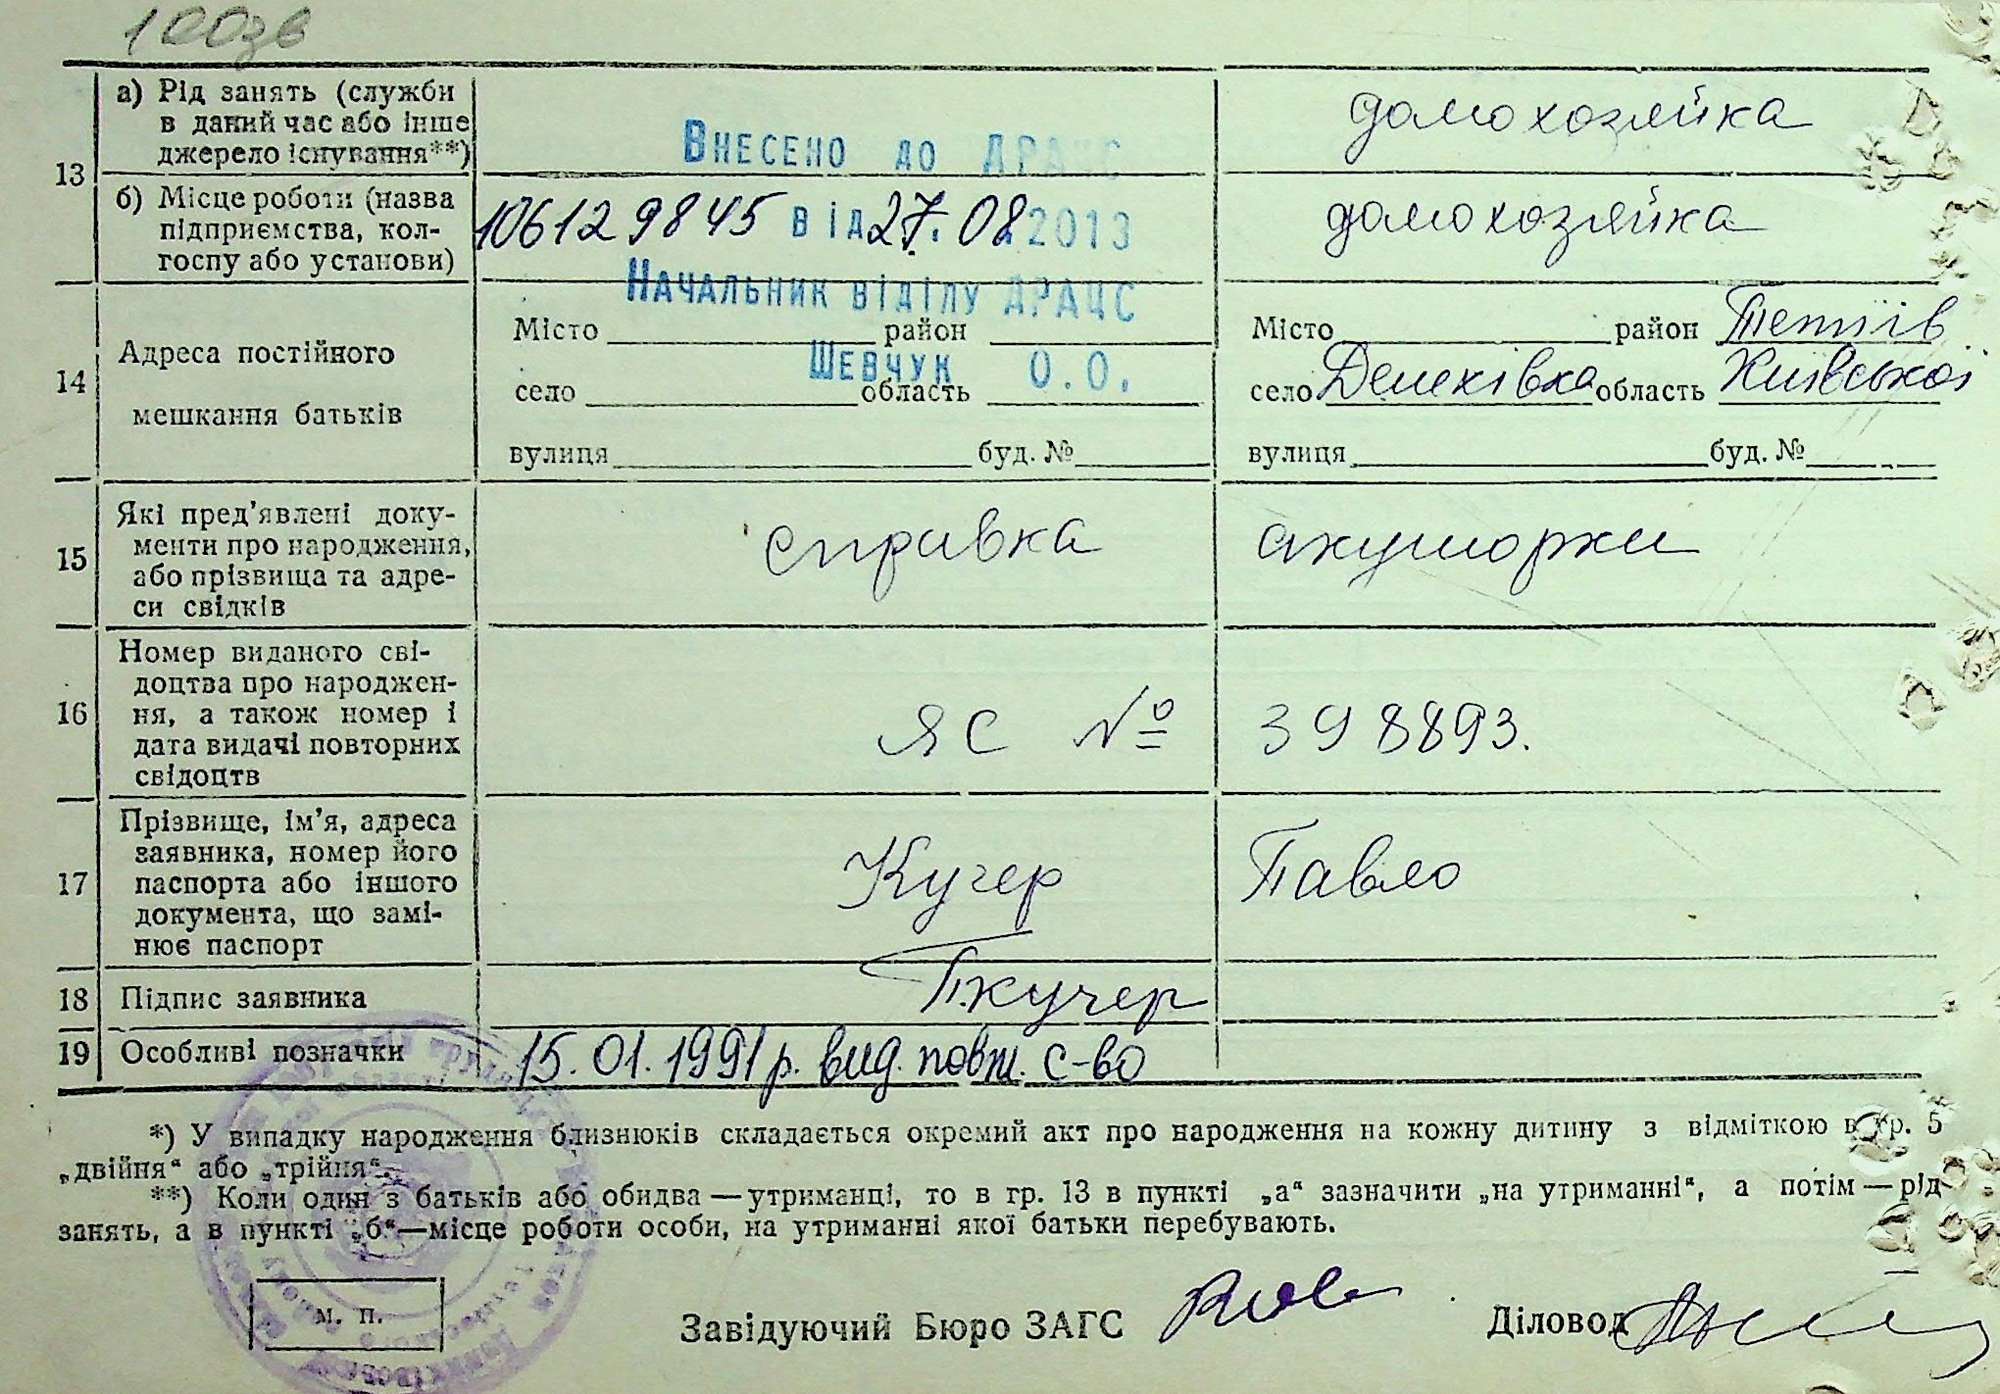 13 а) Рід занять (служби
в даний час або інше
джерело існування**)
Внесено до ДРАЦС
домохозяйка
б) Місце роботи (назва
підприємства, кол-
госпу або установи)
106129845 від 27.08.2013
домохозяйка
Начальник відділу ДРАЦС
Шевчук О.О.
14 Адреса постійного
мешкання батьків
Місто район
село область
вулиця буд. №
Місто район Тетіїв
село Денихівка область Київської
вулиця буд. №
15 Які пред'явлені доку-
менти про народження,
або прізвища та адре-
си свідків
справка акушорки
16 Номер виданого сві-
доцтва про народжен-
ня, а також номер і
дата видачі повторних
свідоцтв
ЯС № 398893.
17 Прізвище, ім'я, адреса
заявника, номер його
паспорта або іншого
документа, що замі-
нює паспорт
Кучер Павло
18 Підпис заявника
П.Кучер
19 Особливі позначки
15.01.1991 р. вид. повт. с-во
*) У випадку народження близнюків складається окремий акт про народження на кожну дитину з відміткою в гр. 5
„двійня“ або „трійня“.
**) Коли один з батьків або обидва—утриманці, то в гр. 13 в пункті „а“ зазначити „на утриманні“, а потім—рід
занять, а в пункті „б“—місце роботи особи, на утриманні якої батьки перебувають.
М. П.
Завідуючий Бюро ЗАГС
Діловод